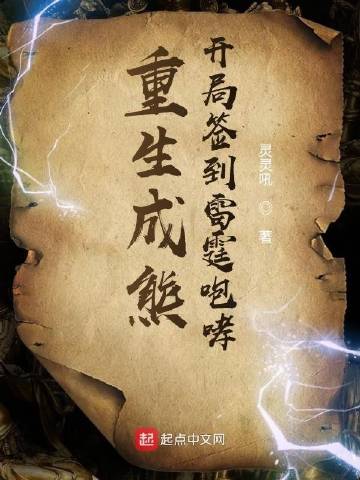 重生成熊
开局签到雷霆咆哮
灵灵吼 ◎ 著
起 起点中文网